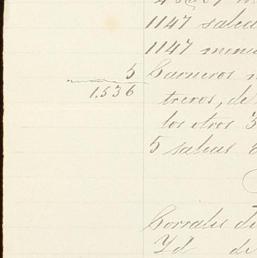 1147 saleas
1147 menu
5 Carneros m
1.536 treros, de
los otros 3
5 saleas
Corrales de
Yd de